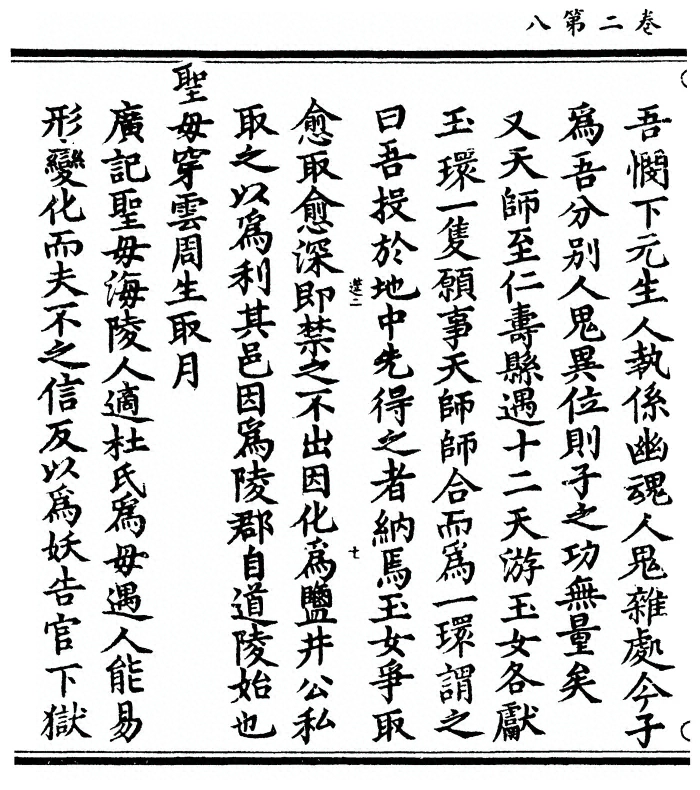 卷二第八
吾憫下元生人執係幽魂人鬼雜處今子
爲吾分别人鬼異位則子之功無量矣
又天師至仁壽縣遇十二天游玉女各獻
玉環一隻願事天師師合而爲一環謂之
曰吾投於地中先得之者納焉玉女爭取
愈取愈深即禁之不出因化爲鹽井公私
取之以爲利其邑因爲陵郡自道陵始也
聖毋穿雲周生取月
廣記聖毋海陵人適杜氏爲毋遇人能易
形變化而夫不之信反以爲妖告官下獄